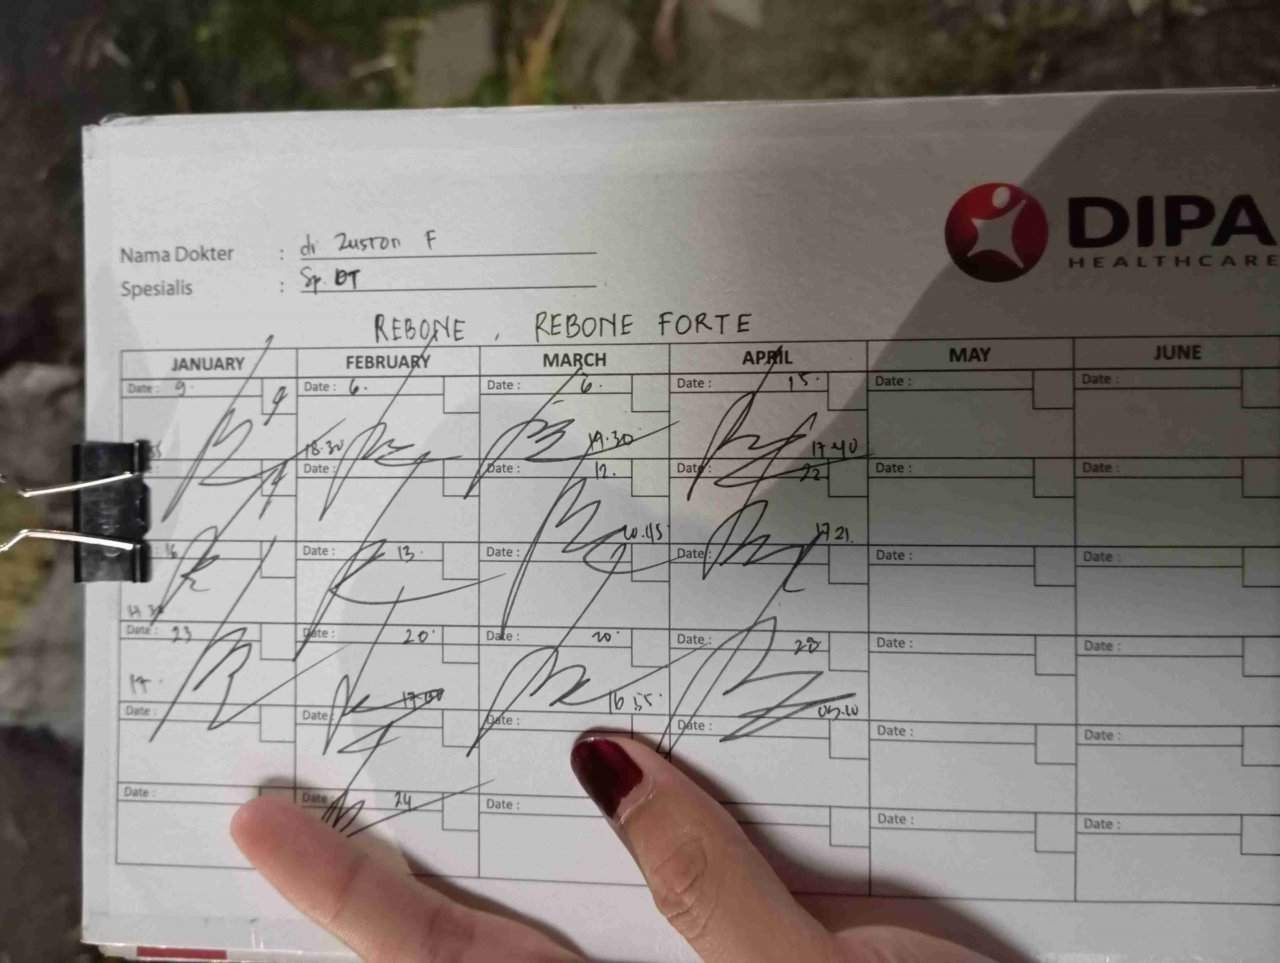 DIPA
HEALTHCARE
Nama Dokter : dr Zuston F
Spesialis : Sp. OT
REBONE , REBONE FORTE
JANUARY FEBRUARY MARCH APRIL MAY JUNE
Date : 9. Date : 6. Date : 6. Date : 15. Date : Date :
18.30 19.30 17.40
Date : Date : 12. Date : 22 Date : Date :
17 21.
16 Date : 13. Date : Date : Date : Date :
Date : 23 Date : 20. Date : 20. Date : 28 Date : Date :
17. 16.55.
Date : Date : Date : Date : Date : Date :
Date : Date : 24 Date : Date : Date :